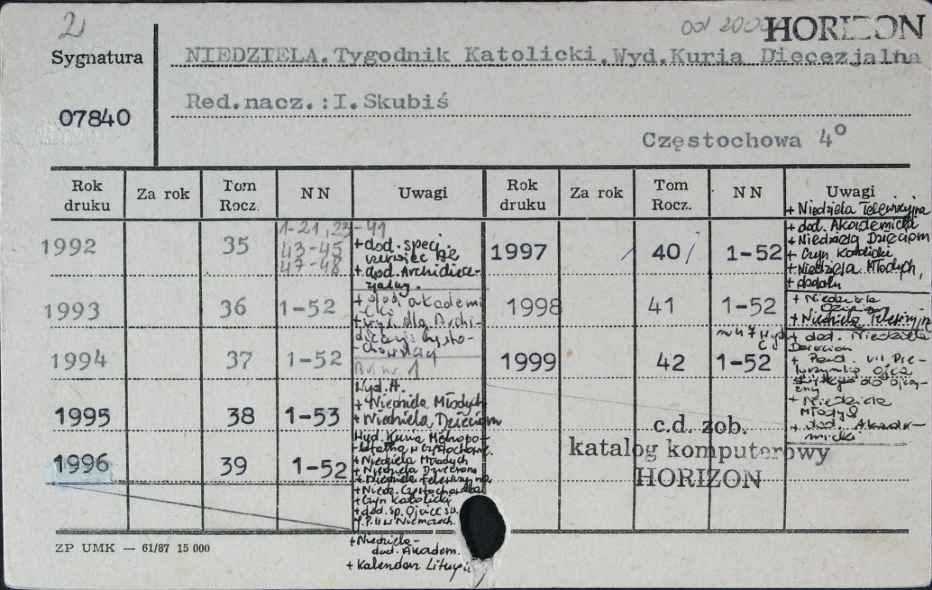 2
od 20
HORIZON
Sygnatura
NIEDZIELA.Tygodnik Katolicki.Wyd.Kuria Diecezjalna
07840
Red.nacz.:I.Skubiś
Częstochowa 4°
Rok druku
Za rok
Tom Rocz.
NN
Uwagi
Rok druku
Za rok
Tom Rocz.
NN
Uwagi
1992
35
1-21, 23-41
43-45
47-48
+dod. specj.
+dod. Archidiece-
zjalny.
1993
36
1-52
+ dod. akademi
cki
+ wyd. dla Archi-
diecezji Często-
chowskiej
1994
37
1-52
nr 1
1995
38
1-53
Wyd. A.
+Niedziela Młodych
+Niedziela Dzieciom
1996
39
1-52
Wyd. Kuria Metropo-
litalna w Częstochowie.
+Niedziela Młodych
+Niedziela Dzieciom
+Niedziela Telewizyjna
+Niedz. Częstochowska
+Czyn Katolicki
+dod. sp. Ojciec Św.
J.P.II w Niemczech.
+Niedziela-
dod. Akadem.
+Kalendarz Liturgi
1997
/ 40/
1-52
+ Niedziela Telewizyjna
+ dod. Akademicki
+Niedziela Dzieciom
+ Czyn Katolicki
+Niedziela Młodych,
+ dodatki
1998
41
1-52
+ Niedziela
Dzieciom
+ Niedziela Telewizyjna
1999
42
nr 47 Wyd
1-52
+ dod. Niedziela
Dzieciom
+ Pond. VII Pie-
lgrzymka Ojca
Świętego do Ojczy-
zny
+ Niedziela
Młodych
+ dod. Akade-
micki
c.d. zob.
katalog komputerowy
HORIZON
ZP UMK — 61/87 15 000